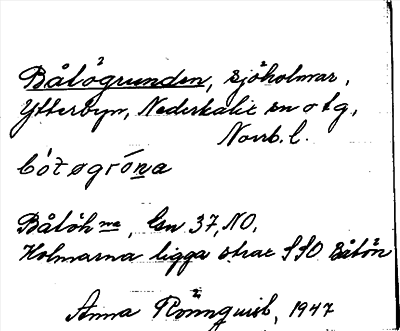 Båtögrunden, sjöholmar,
Ytterbyn, Nederkalix sn o tg,
Norrb. l.
bótøgróna
Båtöhme, Gsn 37, NO.
Holmarna ligga strax SSO Båtön
Anna Rönnquist, 1947